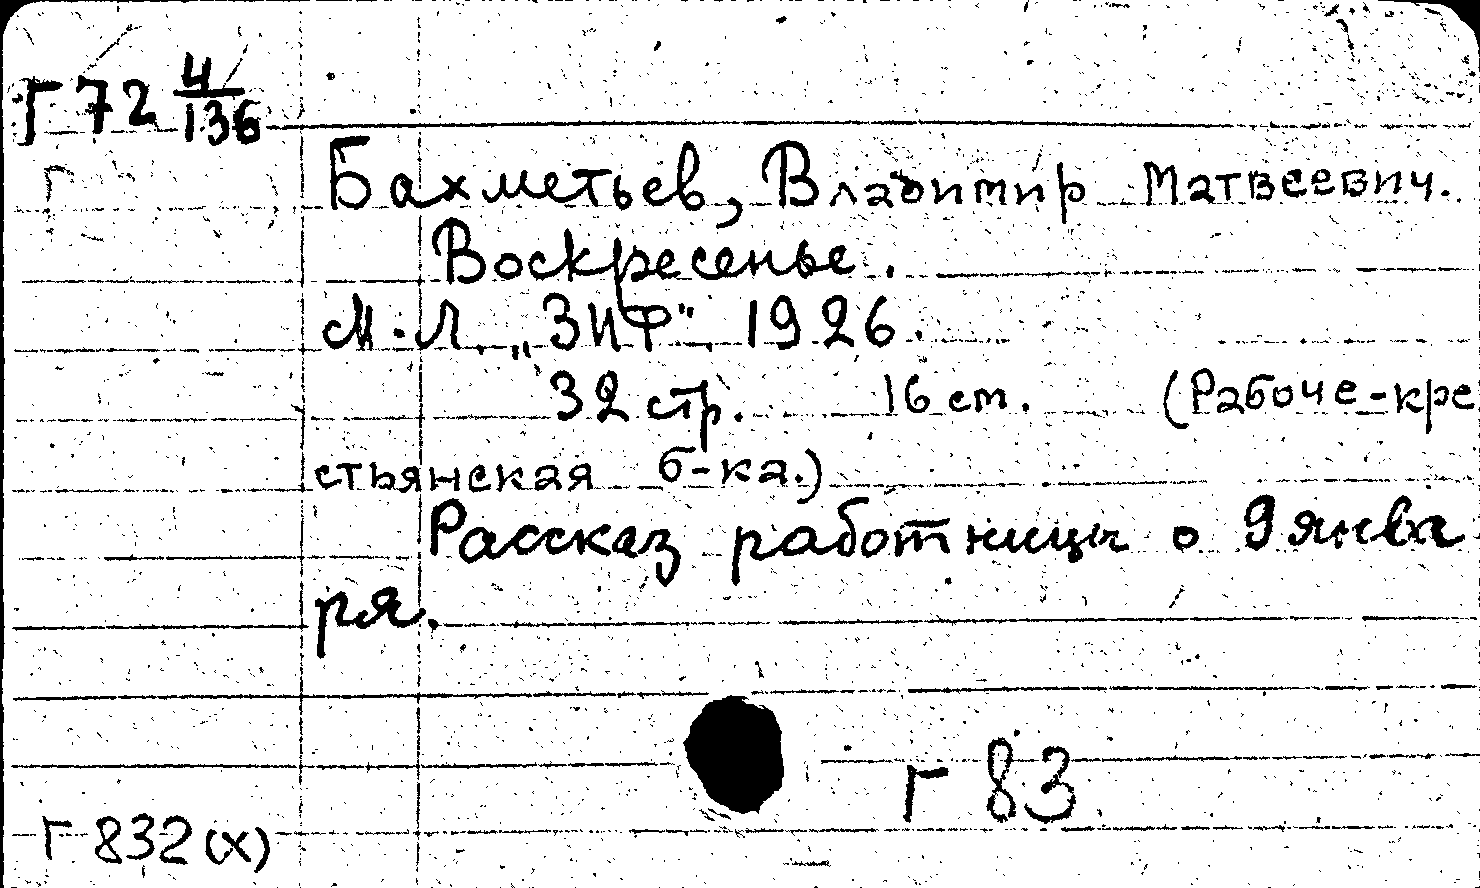 Г 72 4/136
Бахметьев, Владимир Матвеевич.
Воскресенье.
М.-Л. „ЗИФ" 1926.
32 стр. 16 см. (Рабоче-кре
стьянская б-ка.)
Рассказ работницы о 9 янва
ря.
Г 83
Г 832(х)